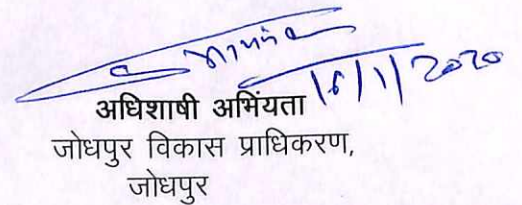 16/1/2020
अधिशाषी अभिंयता
जोधपुर विकास प्राधिकरण,
जोधपुर